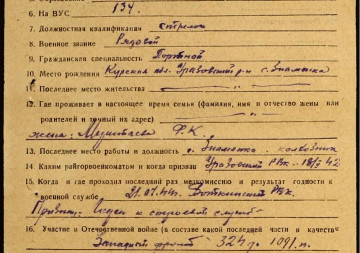 6. На ВУС 134.
7. Должностная квалификация стрелок
8. Военное звание Рядовой
9. Гражданская специальность Портной
10. Место рождения Курская обл. Уразовский р-н с. Знаменка
11. Последнее место жительства
12. Где проживает в настоящее время семья (фамилия, имя и отчество жены или
родителей и точный их адрес)
жена: Ф. К.
13. Последнее место работы и должность с. Знаменка - колхозник
14. Каким райгорвоенкоматом и когда призван Уразовский РВК - 42
15. Когда и где проходил последний раз медкомиссию и результат годности к
военной службе 21.07.44. Боткинский РВК.
Признан: Годен к строевой службе
16. Участие в Отечественной войне (в составе какой последней части и качестве
Западный фронт 324 1091 п.